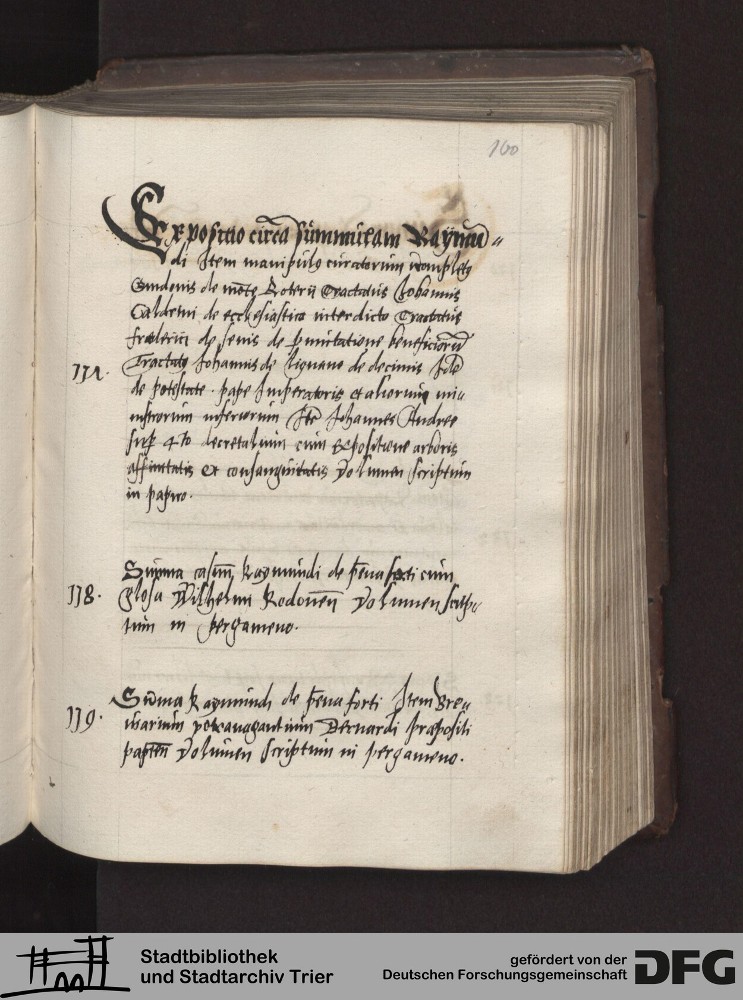 160
Expositio circa summulam Raymu͂„
di Item manipulus curatorum completus
Guidonis de mo͂te Roterii Tractatus Johannis
Calderini de ecclesiastico interdicto Tractatus
frederici de senis de p̲mutatione beneficioru͂
Tractatus Johannis de lignano de decimis Ite͂
de potestate pape Imperatoris et aliorum mi„
nistrorum inferiorum Ite͂ Johannes Andree
sup̲ 4to decretalium cum Expositione arboris
affinitatis et consanguinitatis Volumen scriptum
in papiro.
Summa casuu͂ Raymundi de pe͂naforti cum
118. glosa Wilhelmi Rodone͂n Volumen scrip„
tum in pergameno.
Sum̄a Raymundi de pe͂na forti Item Bre„
119. viarium Bernardi præpositi
papien͂ Volumen scriptum in pergameno.
Stadtbibliothek
und Stadtarchiv Trier
gefördert von der
Deutschen Forschungsgemeinschaft
DFG